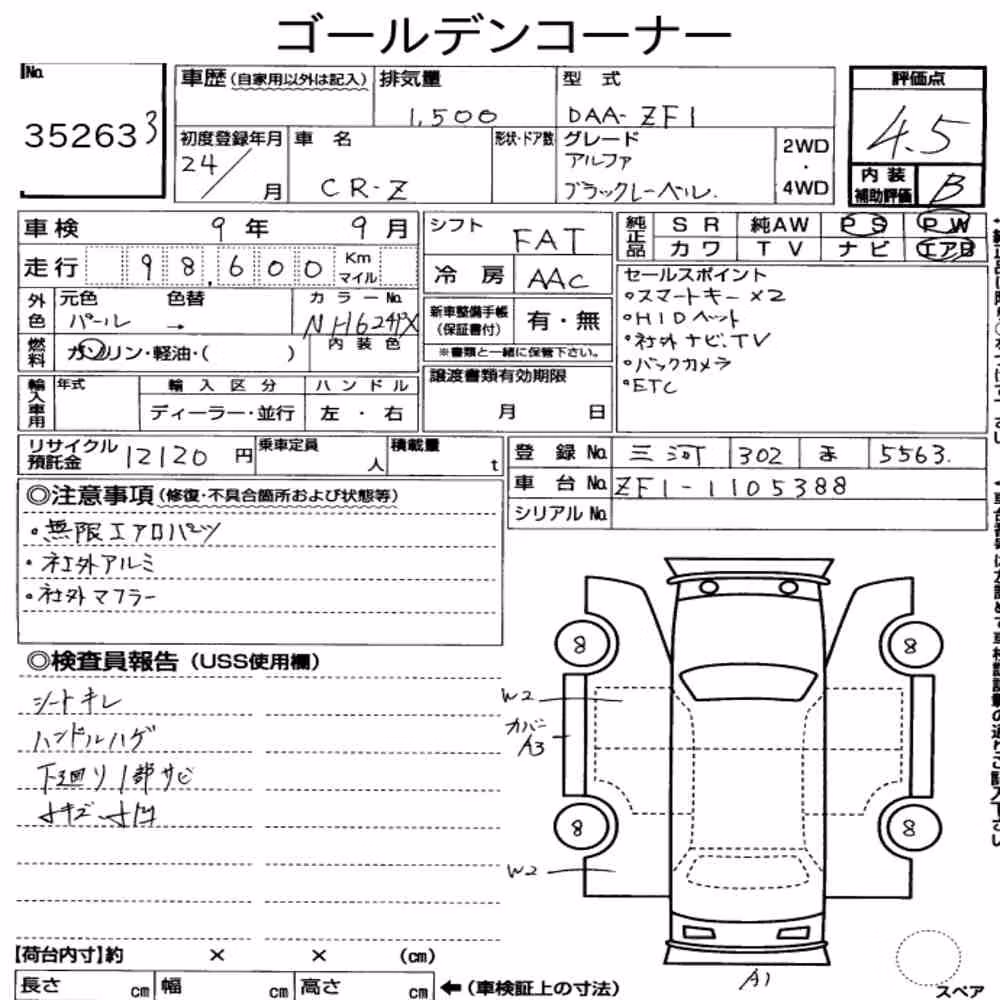 ゴールデンコーナー
No.
352633
車歴(自家用以外は記入)
排気量
1,500
型 式
DAA-ZF1
評価点
4.5
初度登録年月
24/ 月
車 名
CR-Z
形状・ドア数
グレード
アルファ
ブラックレーベル.
2WD
・
4WD
内 装
補助評価
B
車検 9年 9月
シフト
FAT
純正品
SR 純AW PS PW
カワ TV ナビ エアB
走行 98,600 Km マイル
冷 房 AAC
セールスポイント
・スマートキー×2
・HIDヘット
・社外ナビ.TV
・バックカメラ
・ETC
外色
元色 色替
パール →
カラーNo.
NH624PX
新車整備手帳
(保証書付)
有・無
※書類と一緒に保管下さい。
燃料
ガソリン・軽油・( )
内 装 色
譲渡書類有効期限
月 日
輸入車用
年式
輸 入 区 分
ハ ン ド ル
ディーラー・並行
左 ・ 右
リサイクル
預託金
12120 円
乗車定員
人
積載量
t
登 録 No. 三河 302 ま 5563.
車 台 No. ZF1-1105388
シリアル No.
◎注意事項(修復・不具合箇所および状態等)
・無限エアロパーツ
・社外アルミ
・社外マフラー
◎検査員報告(USS使用欄)
シートキレ
ハンドルハゲ
下廻り1部サビ
小キズ、小凹
8
8
W2
カバー
A3
8
8
W2
A1
【荷台内寸】約 × × (cm)
長さ cm 幅 cm 高さ cm
←(車検証上の寸法)
スペア